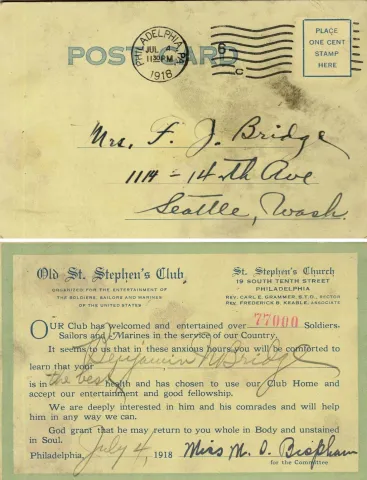 POST CARD
PHILADELPHIA, PA.
JUL 4
1130PM
1918
6
C
PLACE
ONE CENT
STAMP
HERE
Mrs. F. J. Bridge
1114 - 14th Ave
Seattle, Wash.
Old St. Stephen's Club
ORGANIZED FOR THE ENTERTAINMENT OF
THE SOLDIERS, SAILORS AND MARINES
OF THE UNITED STATES
St. Stephen's Church
19 SOUTH TENTH STREET
PHILADELPHIA
REV. CARL E. GRAMMER, S.T.D., RECTOR
REV. FREDERICK B. KEABLE, ASSOCIATE
OUR Club has welcomed and entertained over 77000 Soldiers,
Sailors and Marines in the service of our Country.
It seems to us that in these anxious hours you will be comforted to
learn that your Benjamin Bridge
is in the best health and has chosen to use our Club Home and
accept our entertainment and good fellowship.
We are deeply interested in him and his comrades and will help
him in any way we can.
God grant that he may return to you whole in Body and unstained
in Soul.
Philadelphia, July 4, 1918 Miss M. D. Bispham
for the Committee